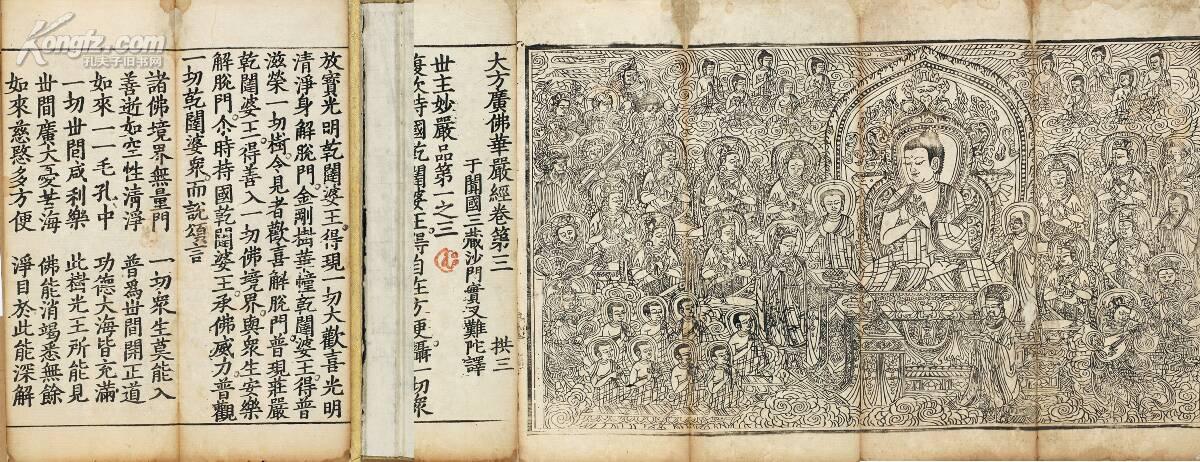 大方廣佛華嚴經卷第三 拱三
于闐國三藏沙門實叉難陀譯
世主妙嚴品第一之三
復次持國乾闥婆王得自在方便攝一切衆
放寶光明乾闥婆王得現一切大歡喜光明
清淨身解脫門金剛樹華幢乾闥婆王得普
滋榮一切樹令見者歡喜解脫門普現莊嚴
乾闥婆王得善入一切佛境界與衆生安樂
解脫門尒時持國乾闥婆王承佛威力普觀
一切乾闥婆衆而說頌言
諸佛境界無量門 一切衆生莫能入
善逝如空性清淨 普爲世間開正道
如來一一毛孔中 功德大海皆充滿
一切世間咸利樂 此樹光王所能見
世間廣大憂苦海 佛能消竭悉無餘
如來慈愍多方便 淨目於此能深解
Kongfz.com
孔夫子旧书网